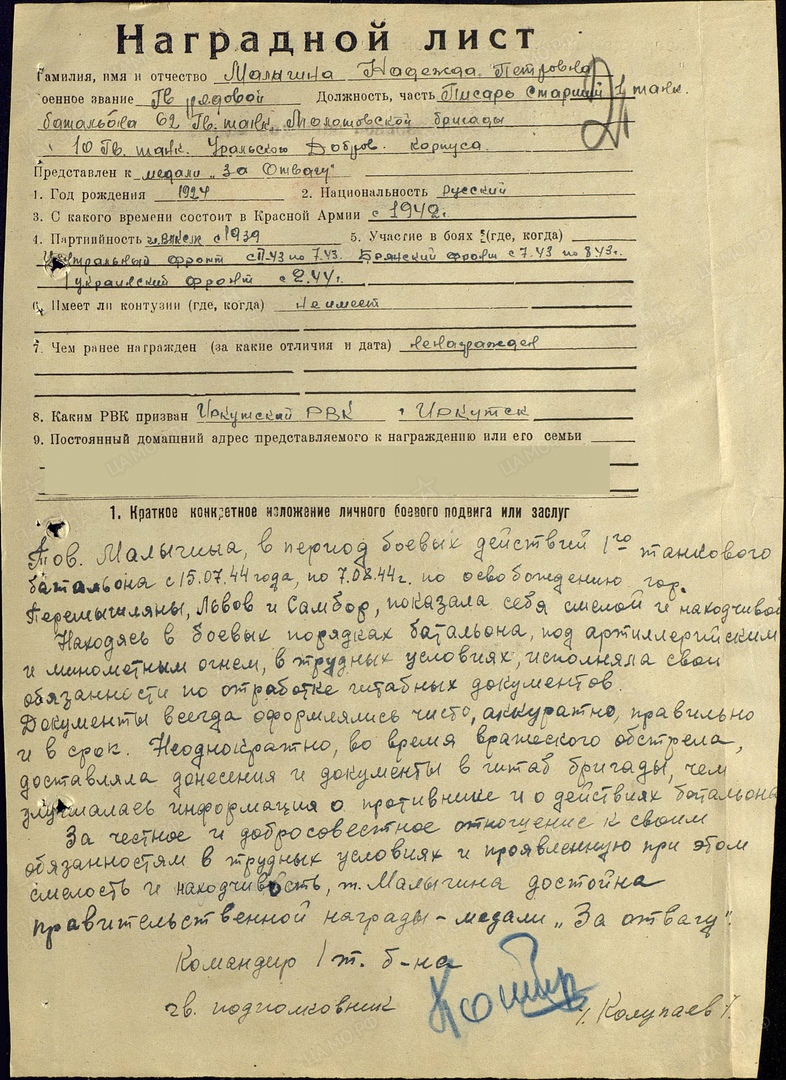 Наградной лист
Фамилия, имя и отчество Малыгина Надежда Петровна
военное звание Гв рядовой Должность, часть Писарь старший 1 танк.
батальона 62 Гв. танк. Молотовской бригады
10 Гв. танк. Уральского Добров. корпуса
Представлен к медали „За Отвагу"
1. Год рождения 1924 2. Национальность русский
3. С какого времени состоит в Красной Армии с 1942г.
4. Партийность чл. ВЛКСМ с 1939 5. Участие в боях (где, когда)
Центральный фронт с 7.43. Брянский фронт с 7.43 по 8.43г.
1 украинский фронт с 2.44г.
6. Имеет ли контузии (где, когда) Не имеет
7. Чем ранее награжден (за какие отличия и дата) ненагражден
8. Каким РВК призван Иркутский РВК г Иркутск
9. Постоянный домашний адрес представляемого к награждению или его семьи
1. Краткое конкретное изложение личного боевого подвига или заслуг
Тов. Малыгина, в период боевых действий 1го танкового
батальона с 15.07.44 года, по 7.08.44г. по освобождению гор.
Перемышляны, Львов и Самбор, показала себя смелой и находчивой
Находясь в боевых порядках батальона, под артиллерийским
и минометным огнем, в трудных условиях, исполняла свои
обязанности по отработке штабных документов.
Документы всегда оформлялись чисто, аккуратно, правильно
и в срок. Неоднократно, во время вражеского обстрела,
доставляла донесения и документы в штаб бригады, чем
улучшалась информация о противнике и о действиях батальона
За честное и добросовестное отношение к своим
обязанностям в трудных условиях и проявленную при этом
смелость и находчивость, т. Малыгина достойна
правительственной награды - медали „За отвагу".
Командир 1 т. б-на
гв. подполковник /Колупаев/.